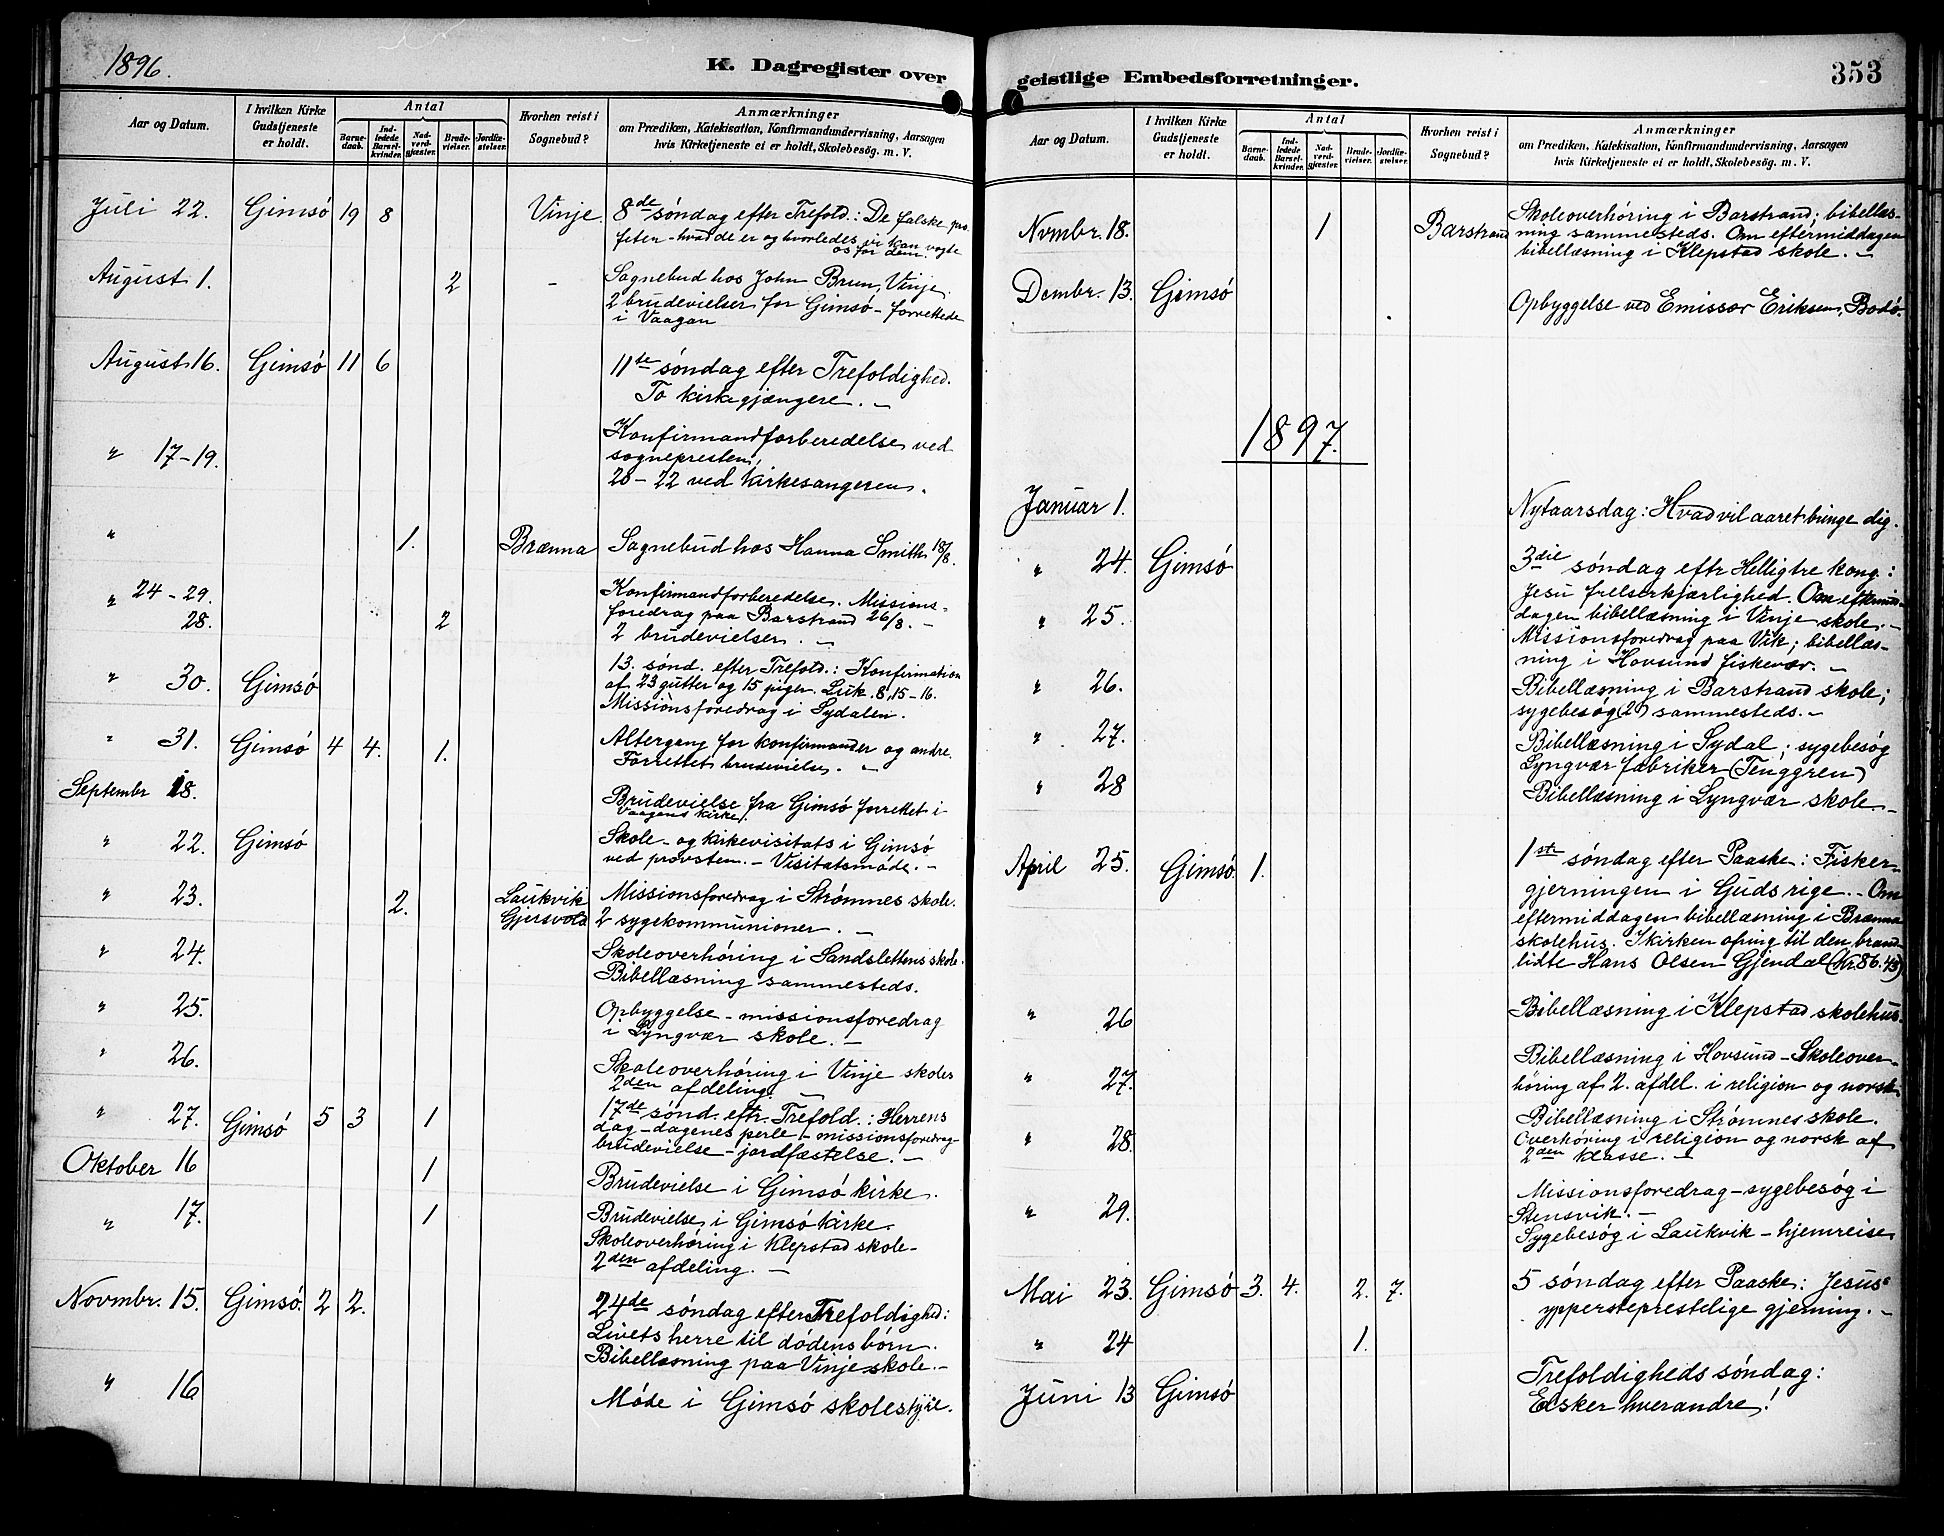 1896.
K. Dagregister over
Aar og Datum.
I hvilken Kirke Gudstjeneste er holdt.
Antal
Barnedaab.
Indledede Barselkvinder.
Nadverdgjæster.
Brudevielser.
Jordfæstelser.
Hvorhen reist i Sognebud?
Anmærkninger
om Prædiken, Katekisation, Konfirmandundervisning, Aarsagen
hvis Kirketjeneste ei er holdt, Skolebesøg. m. V.
Juli 22. Gimsø 19 8 Vinje 8de søndag efter Trefold.: De falske pro-
feter – hvad de er og hvorledes vi kan vogte
os for dem.
August 1. 2 – Sognebud hos John Brun, Vinje.
2 brudevielser for Gimsø – forrettede
i Vaagan
August 16. Gimsø 11 6 11te søndag efter Trefoldighed.
To kirkegjængere. –
" 17–19. Konfirmandforberedelse ved
sognepresten,
20–22 ved kirkesangeren.
" 1. Brænna Sognebud hos Hanna Smith 18/8.
" 24–29. Konfirmandforberedelse. Missions-
28. 2 foredrag paa Barstrand 26/8. –
2 brudevielser. –
" 30. Gimsø 13. sønd. efter Trefold.: Konfirmation
af 23 gutter og 15 piger. Luk. 8,15–16.
Missionsforedrag i Sydalen.
" 31. Gimsø 4 4. 1. Altergang for konfirmander og andre.
Forrettet brudevielse. –
Septembr 18. Brudevielse fra Gimsø forrettet i
Vaagans kirke.
" 22. Gimsø Skole- og kirkevisitats i Gimsø
ved provsten. – Visitatsmøde. –
" 23. 2. Laukvik Missionsforedrag i Strømnes skole.
Gjersvold 2 sygekommunioner. –
" 24. Skoleoverhøring i Sandslettens skole.
Bibellæsning sammesteds.
" 25. Opbyggelse – missionsforedrag
i Lyngvær skole. –
" 26. Skoleoverhøring i Vinje skoles
2den afdeling.
" 27. Gimsø 5 3 1 17de sønd. eftr. Trefold.: Herrens
dag – dagenes perle – missionsforedrag
brudevielse – jordfæstelse. –
Oktober 16 1 Brudevielse i Gimsø kirke.
" 17. 1 Brudevielse i Gimsø kirke.
Skoleoverhøring i Klepstad skole –
2den afdeling. –
Novmbr. 15. Gimsø. 2 2. 24de søndag efter Trefoldighed:
Livets herre til dødens børn.
Bibellæsning paa Vinje skole. –
" 16 Møde i Gimsø skolestyre.
geistlige Embedsforretninger.
353
Aar og Datum.
I hvilken Kirke Gudstjeneste er holdt.
Antal
Barnedaab.
Indledede Barselkvinder.
Nadverdgjæster.
Brudevielser.
Jordfæstelser.
Hvorhen reist i Sognebud?
Anmærkninger
om Prædiken, Katekisation, Konfirmandundervisning, Aarsagen
hvis Kirketjeneste ei er holdt, Skolebesøg. m. V.
Novmbr. 18. 1 Barstrand Skoleoverhøring i Barstrand; bibellæs-
ning sammesteds. Om eftermiddagen
bibellæsning i Klepstad skole. –
Dcmbr. 13. Gimsø Opbyggelse ved Emissær Eriksen, Bodø.
1897.
Januar 1. Nytaarsdag: Hvad vil aaret bringe dig.
" 24. Gimsø 3die søndag eftr Helligtre kong:
Jesu frelserkjærlighed. Om eftermid-
dagen bibellæsning i Vinje skole. –
" 25. Missionsforedrag paa Vik; bibellæs-
ning i Hovsund fiskevær. –
" 26. Bibellæsning i Barstrand skole;
sygebesøg (2) sammesteds. –
" 27. Bibellæsning i Sydal; sygebesøg
Lyngvær fabriker (Tenggren)
" 28 Bibellæsning i Lyngvær skole. –
April 25. Gimsø 1. 1ste søndag efter Paaske: Fisker-
gjerningen i Guds rige. – Om
eftermiddagen bibellæsning i Brænna
skolehus. I kirken ofring til den brand-
lidte Hans Olsen Gjendal (Kr 86.43)
" 26 Bibellæsning i Klepstad skolehus.
" 27. Bibellæsning i Hovsund – Skoleover-
høring af 2. afdel. i religion og norsk.
" 28. Bibellæsning i Strømnes skole.
Overhøring i religion og norsk af
2den klasse. –
" 29. Missionsforedrag – sygebesøg i
Stensvik. –
Sygebesøg i Laukvik – hjemreise
Mai 23. Gimsø 3. 4. 2. 7. 5 søndag efter Paaske: Jesus'
yppersteprestelige gjerning. –
" 24 1.
Juni 13 Gimsø Trefoldigheds søndag:
Elsker hverandre!